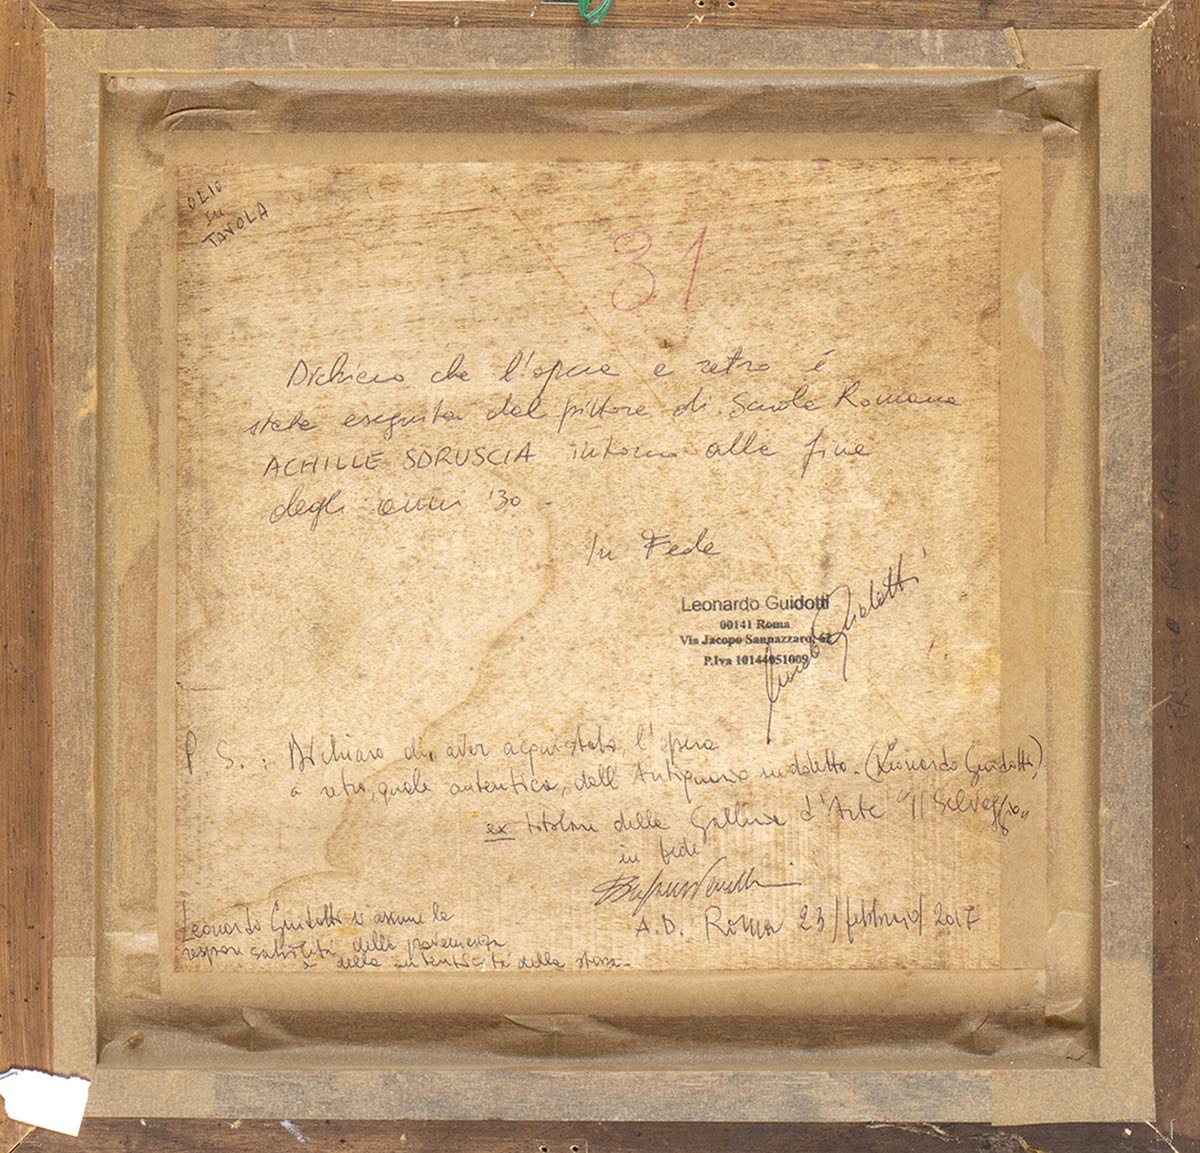 OLIO
su
TAVOLA
31
Dichiaro che l'opera e retro é
stata eseguita dal pittore di Scuola Romana
ACHILLE SDRUSCIA intorno alla fine
degli anni '30 -
In Fede
Leonardo Guidotti
00141 Roma
Via Jacopo Sannazzaro, 62
P.Iva 10144051009
P. S. : Dichiaro di aver acquistato, l'opera
a retro, quale autentica, dall'Antiquario suddetto. (Leonardo Guidotti)
ex titolare della Galleria d'Arte "Il Selvaggio"
in fede
A.D. Roma 23/febbraio/2017
Leonardo Guidotti si assume la
responsabilità della provenienza
e della autenticità della stessa.